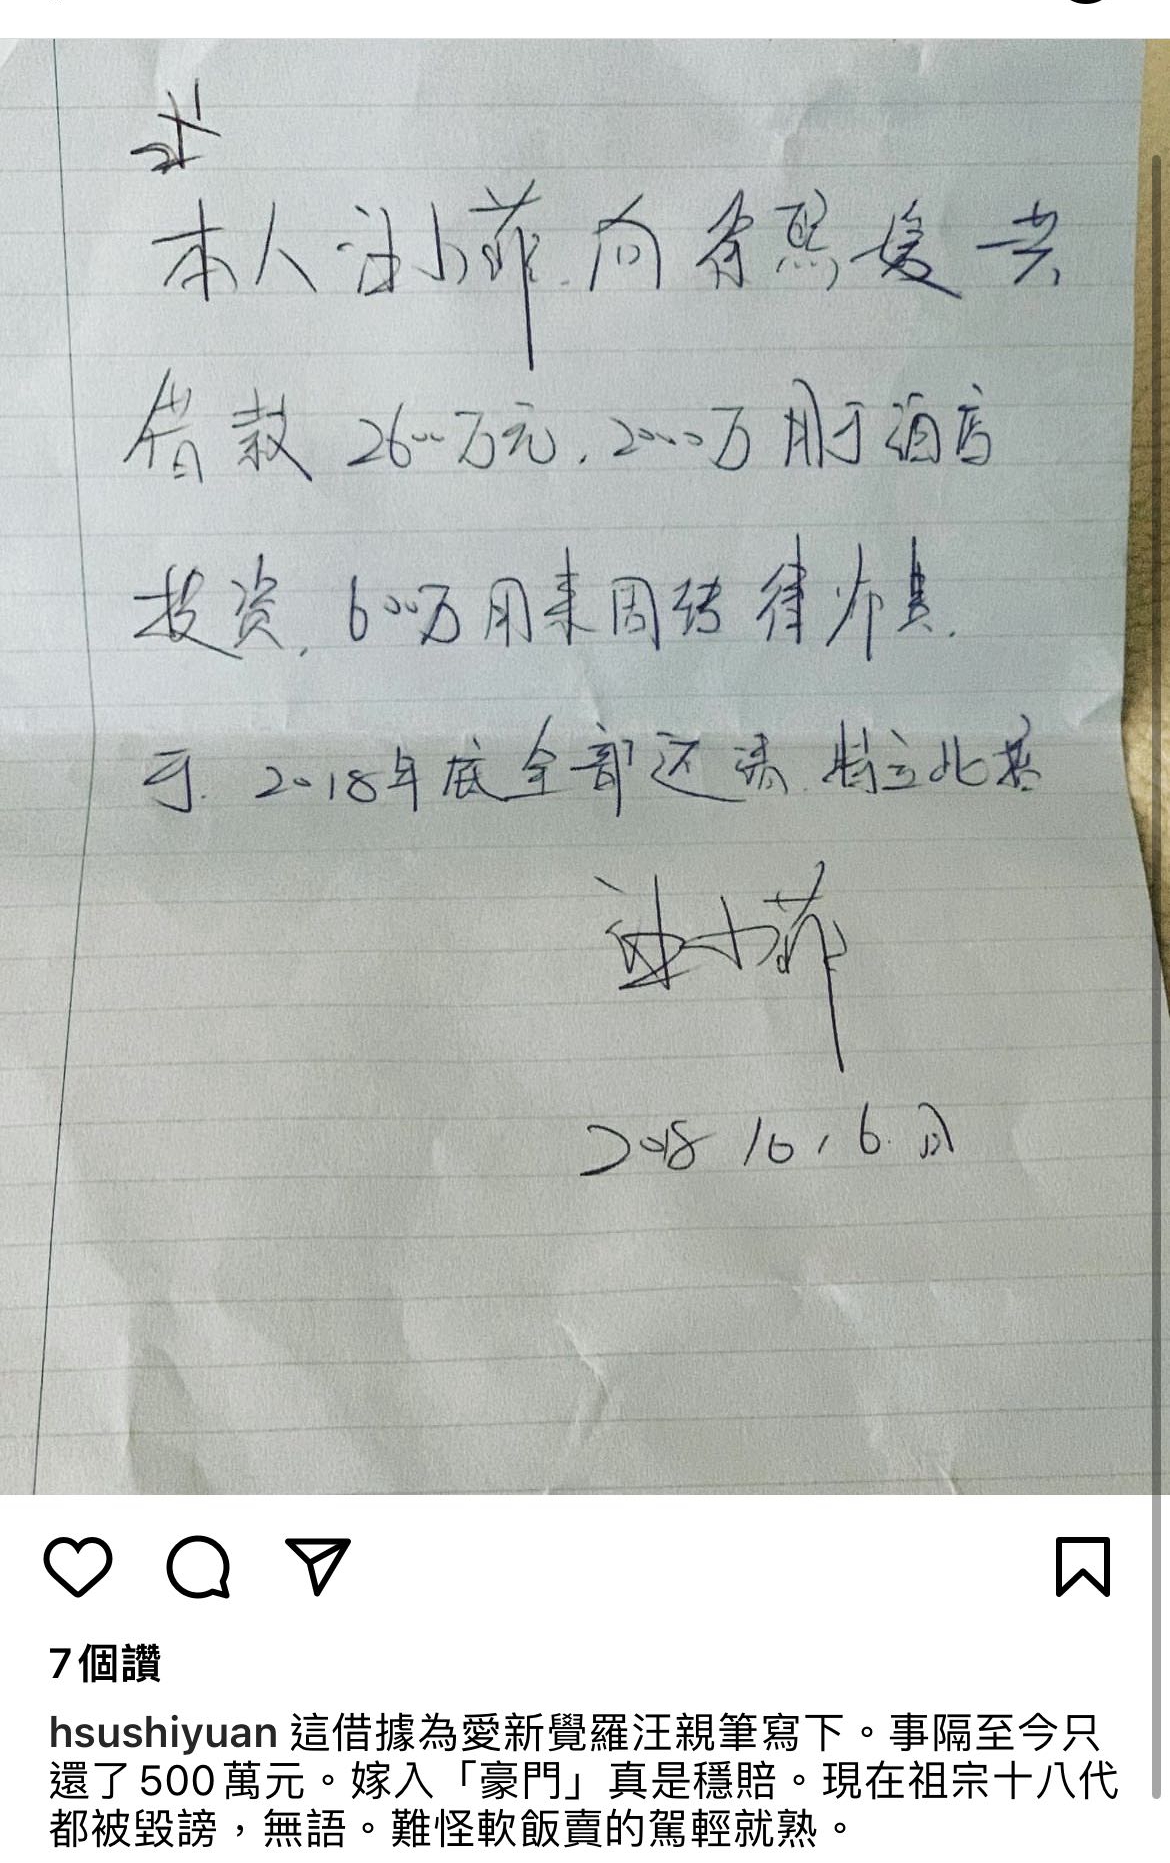 本人汪小菲.向徐熙媛共
借款2600万元.2000万用于酒店
投资,600万用来周转律师费.
于.2018年底全部还清.特立此据
汪小菲
2018 10,6.
7個讚
hsushiyuan 這借據為愛新覺羅汪親筆寫下。事隔至今只
還了500萬元。嫁入「豪門」真是穩賠。現在祖宗十八代
都被毀謗，無語。難怪軟飯賣的駕輕就熟。